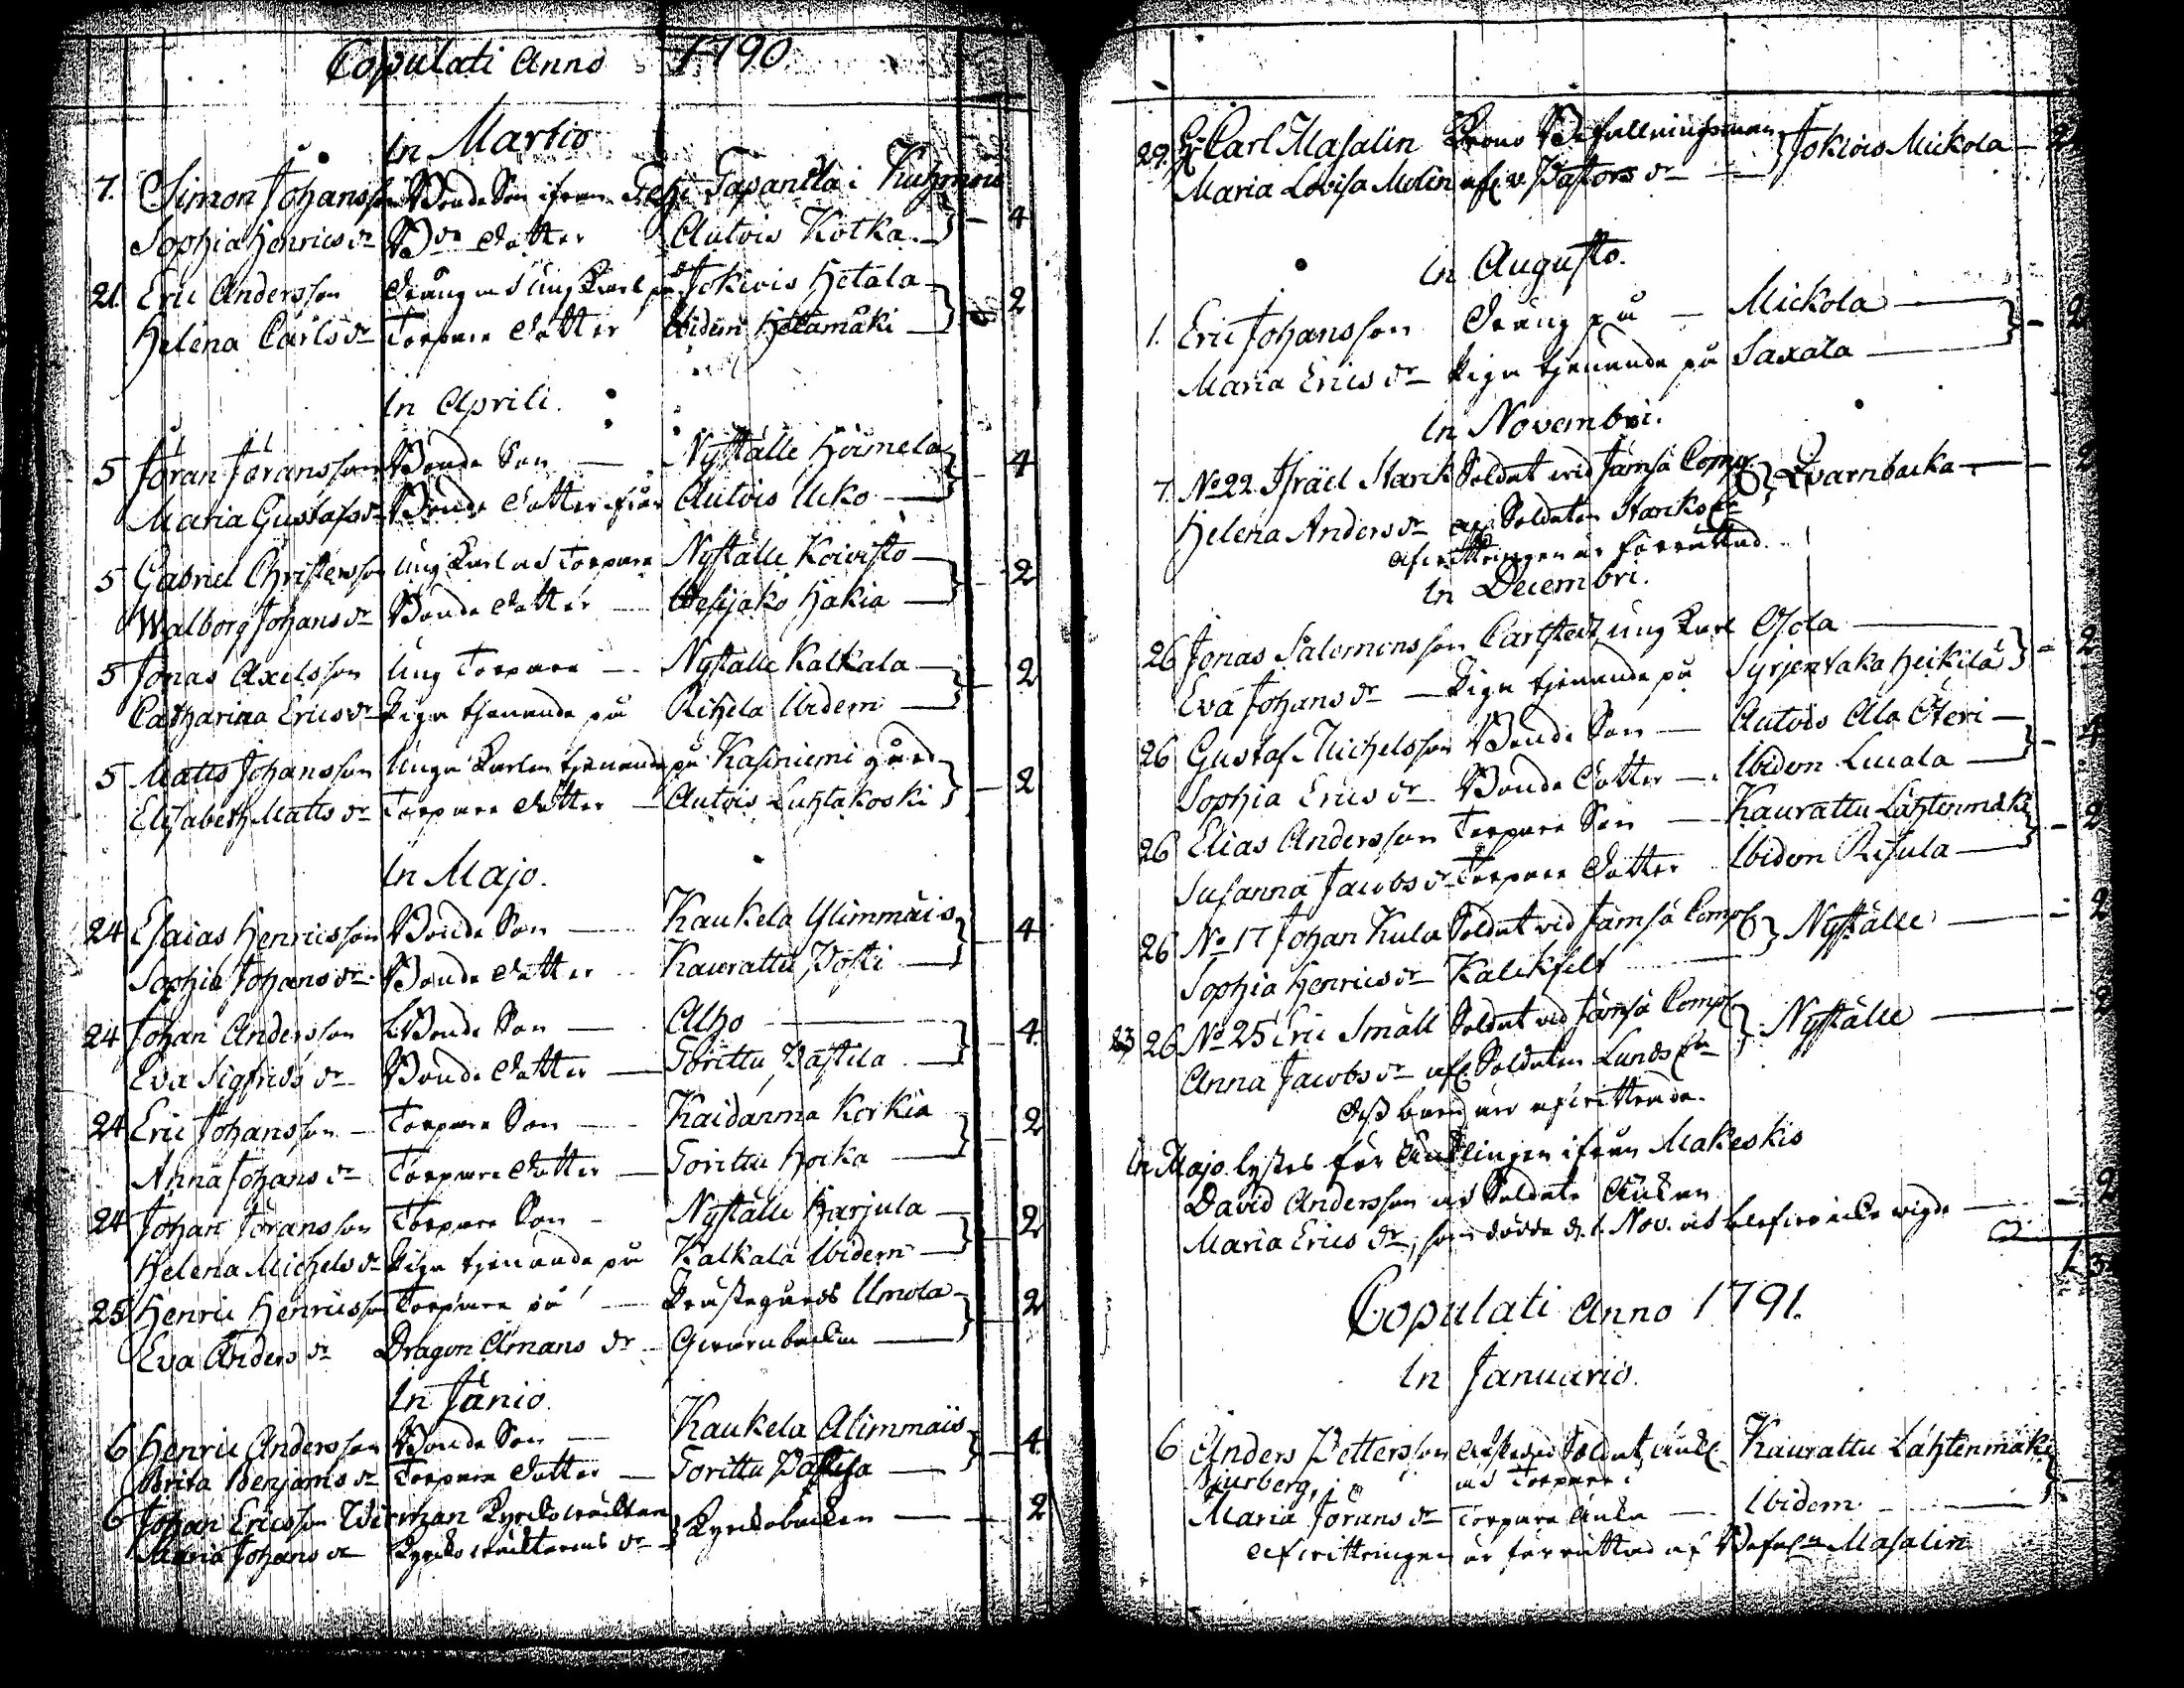 Copulati Anno 1790.
In Martio
7. Simon Johansson Bonde Son ifrån Tapanila i Kuhmois
Sophia Henrics dr Bde dotter Autois Kotka — 4
21 Eric Andersson Dräng ad Ung Karl på Jokiois Hetala
Helena Carls dr Torpare dotter Ibidem Hotamäki — 2
In Aprili.
5 Jöran Jöransson Bonde Son — Nyställe Hörmela
Maria Gustafs dr Bonde dotter från Autois Ucko — 4
5 Gabriel Christersson Ung Karl ad Torpare Nyställe Koivisto
Walborg Johans dr Bonde dotter — Wesijako Hakia — 2
5 Jonas Axelsson Ung Torpare — Nyställe Kalkala
Catharina Erics dr Piga tjenande på Rihela Ibidem — 2
5 Matts Johansson Unga Karlen tjenande på Kasiniemi gård
Elisabeth Matts dr Torpare dotter — Autois Luhtakoski — 2
In Majo.
24 Esaias Henricsson Bonde Son — Kaukela Ylimmäis
Sophia Johans dr Bonde dotter — Kaurattu Posti — 4
24 Johan Andersson Bonde Son — Alho
Eva Sigfrids dr Bonde dotter — Torittu Pastila — 4
24 Eric Johansson — Torpare Son — Kaidanma Korkia
Anna Johans dr Torpare dotter — Torittu Horka — 2
24 Johan Jöransson Torpare Son — Nyställe Harjula
Helena Michels dr Piga tjenande på Kalkala Ibidem — 2
25 Henric Henricsson Torpare på — Prästegårds Umola
Eva Anders dr Dragon Amans dr — Qvarnbacka — 2
In Junio.
6 Henric Andersson Bonde Son — Kaukela Alimmäis
Brita Benjams dr Torpare dotter — Torittu — 4
6 Johan Ericsson Wirman Kyrckowäktare
Maria Johans dr Kyrckowäktarens dr Kyrckobacken — 2
29. Hr Carl Masalin Krono Befallningsman Jokiois Mickola — 2
Maria Lovisa Molin afl. v. Pastors dr
In Augusto.
1. Eric Johansson Dräng på — Mickola
Maria Erics dr Piga tjenande på Saxala — 2
In Novembri.
7. No 22 Israel Starck Soldat vid Jämsä Comp. Qvarnbacka — 2
Helena Anders dr afl. Soldaten Starcks Ea
afwittringen är förrättad.
In Decembri.
26 Jonas Salomonsson Carlstedt ung Karl Osola
Eva Johans dr — Piga tjenande på Syrjentaka Heikilä — 2
26 Gustaf Michelsson Bonde Son — Autois Ala Öteri — 4
Sophia Erics dr Bonde dotter — Ibidem Lucala
26 Elias Andersson Torpare Son — Kaurattu Lähtenmäki
Susanna Jacobs dr Torpare dotter Ibidem Risula — 2
26 No 17 Johan Kula Soldat vid Jämsä Comp. Nyställe — 2
Sophia Henrics dr
26 No 25 Eric Smäll Soldat vid Jämsä Comp. Nyställe — 2
Anna Jacobs dr afl. Soldaten Lunds Ea
Dess barn äro afwittrade.
In Majo lystes för Änklingen ifrån Makeskis
David Andersson ad Soldate Änkan
Maria Erics dr, som dödde d. 1. Nov. ad blefwo icke wigde — 2
Copulati Anno 1791.
In Januario.
6 Anders Pettersson Afsked. Soldat Änkl. Kaurattu Lähtenmäki
Biurberg, ad Torpare i
Maria Jörans dr Torpare Änka — Ibidem
Afwittringen är förrättad af Befalm Masalin